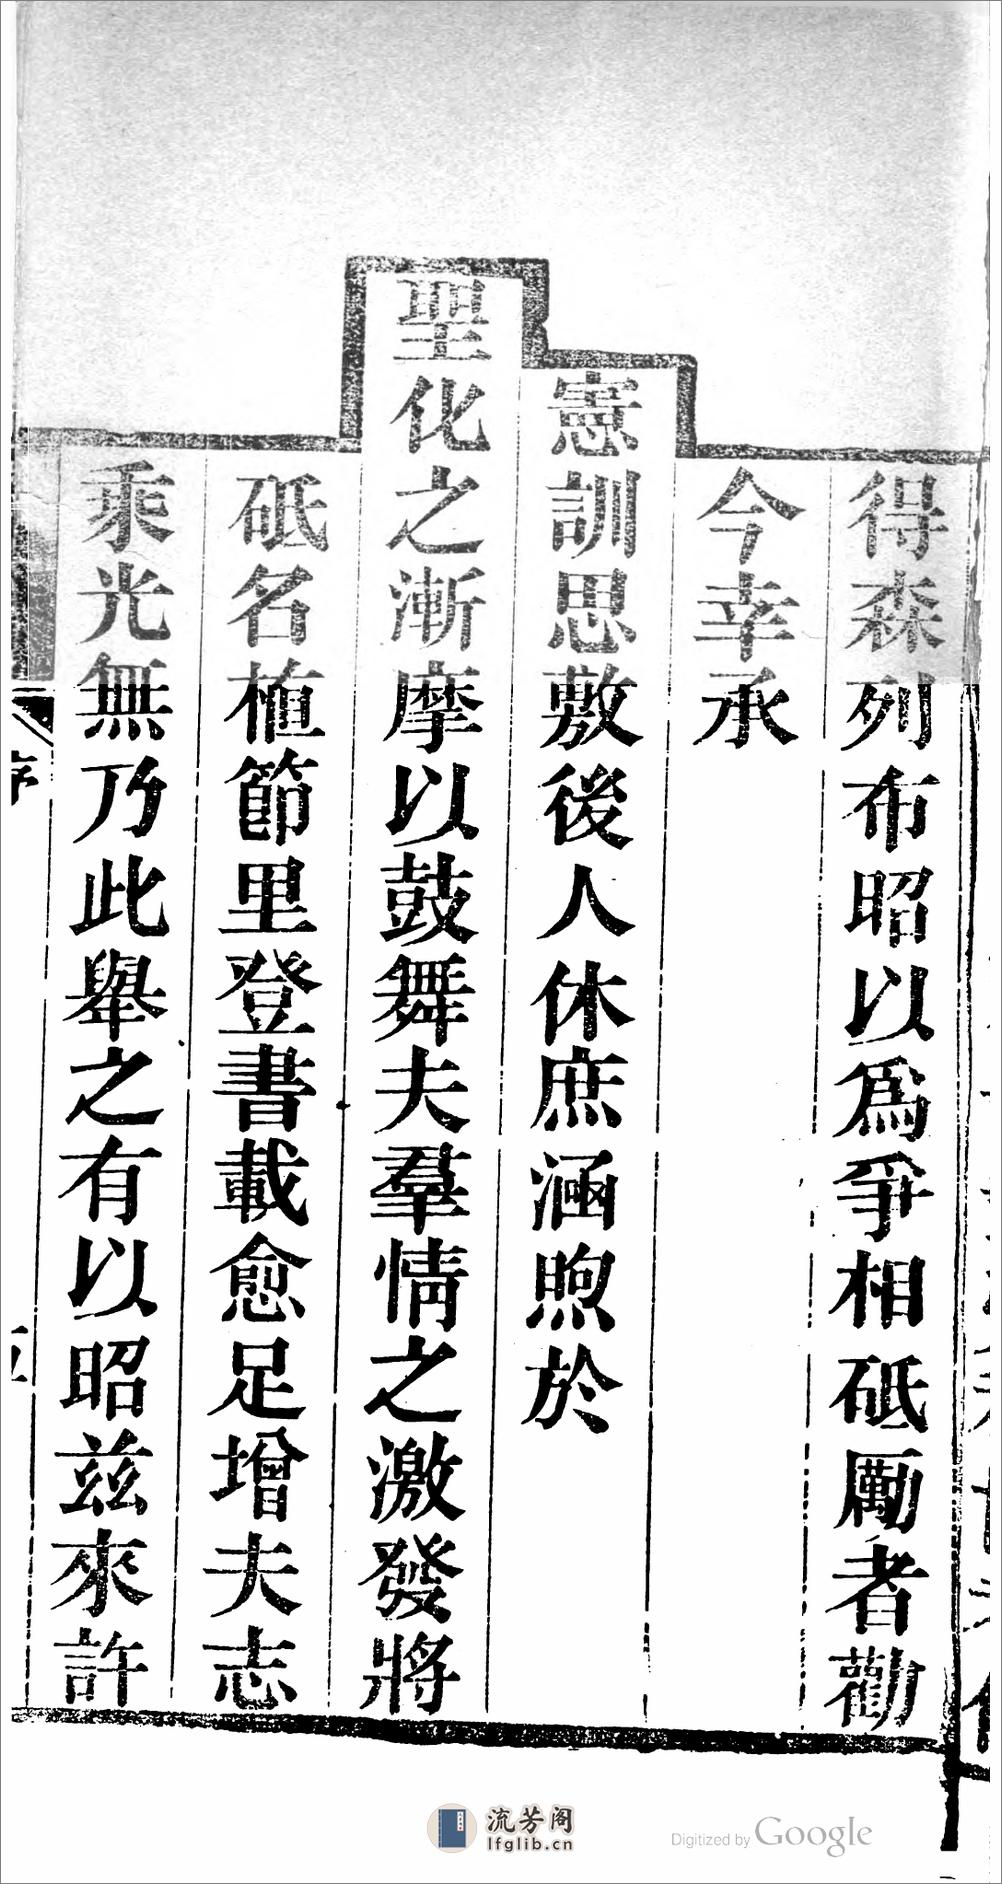 得森列布昭以為爭相砥厲者勸
今幸承
憲訓思敷後人休庶涵煦於
聖化之漸摩以鼓舞夫羣情之激發將
砥名植節里登書載愈足增夫志
乘光無乃此舉之有以昭茲來許
序
流芳阁
lfglib.cn
Digitized by Google